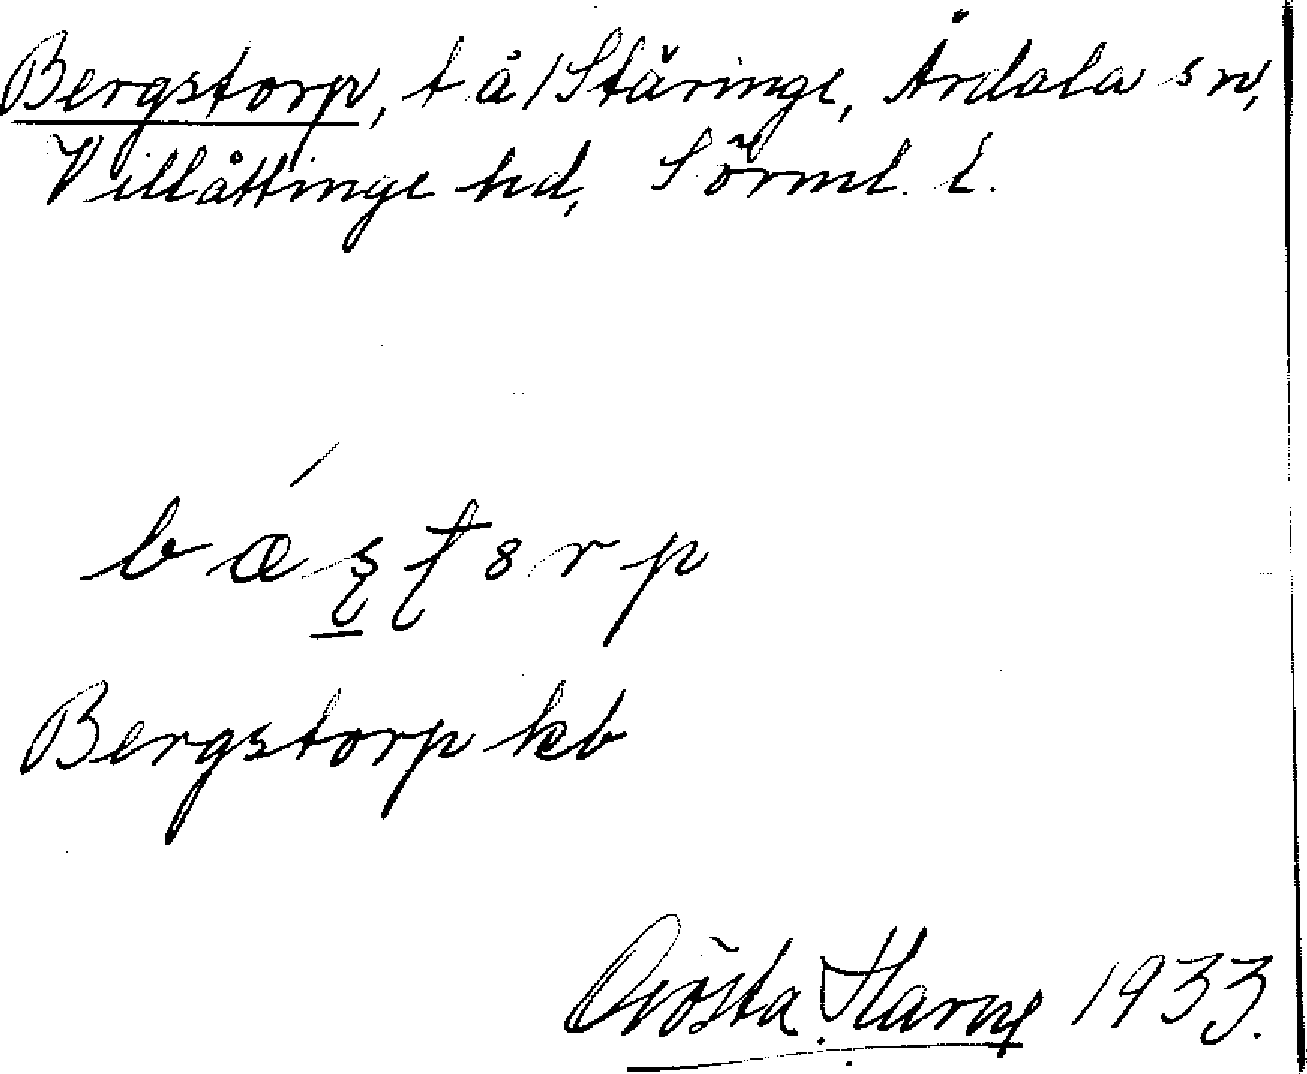 Bergstorp, t å/Stäringe, Årdala sn,
Villåttinge hd, Sörml. l.
Bergstorp kb
Gösta Harne 1933.